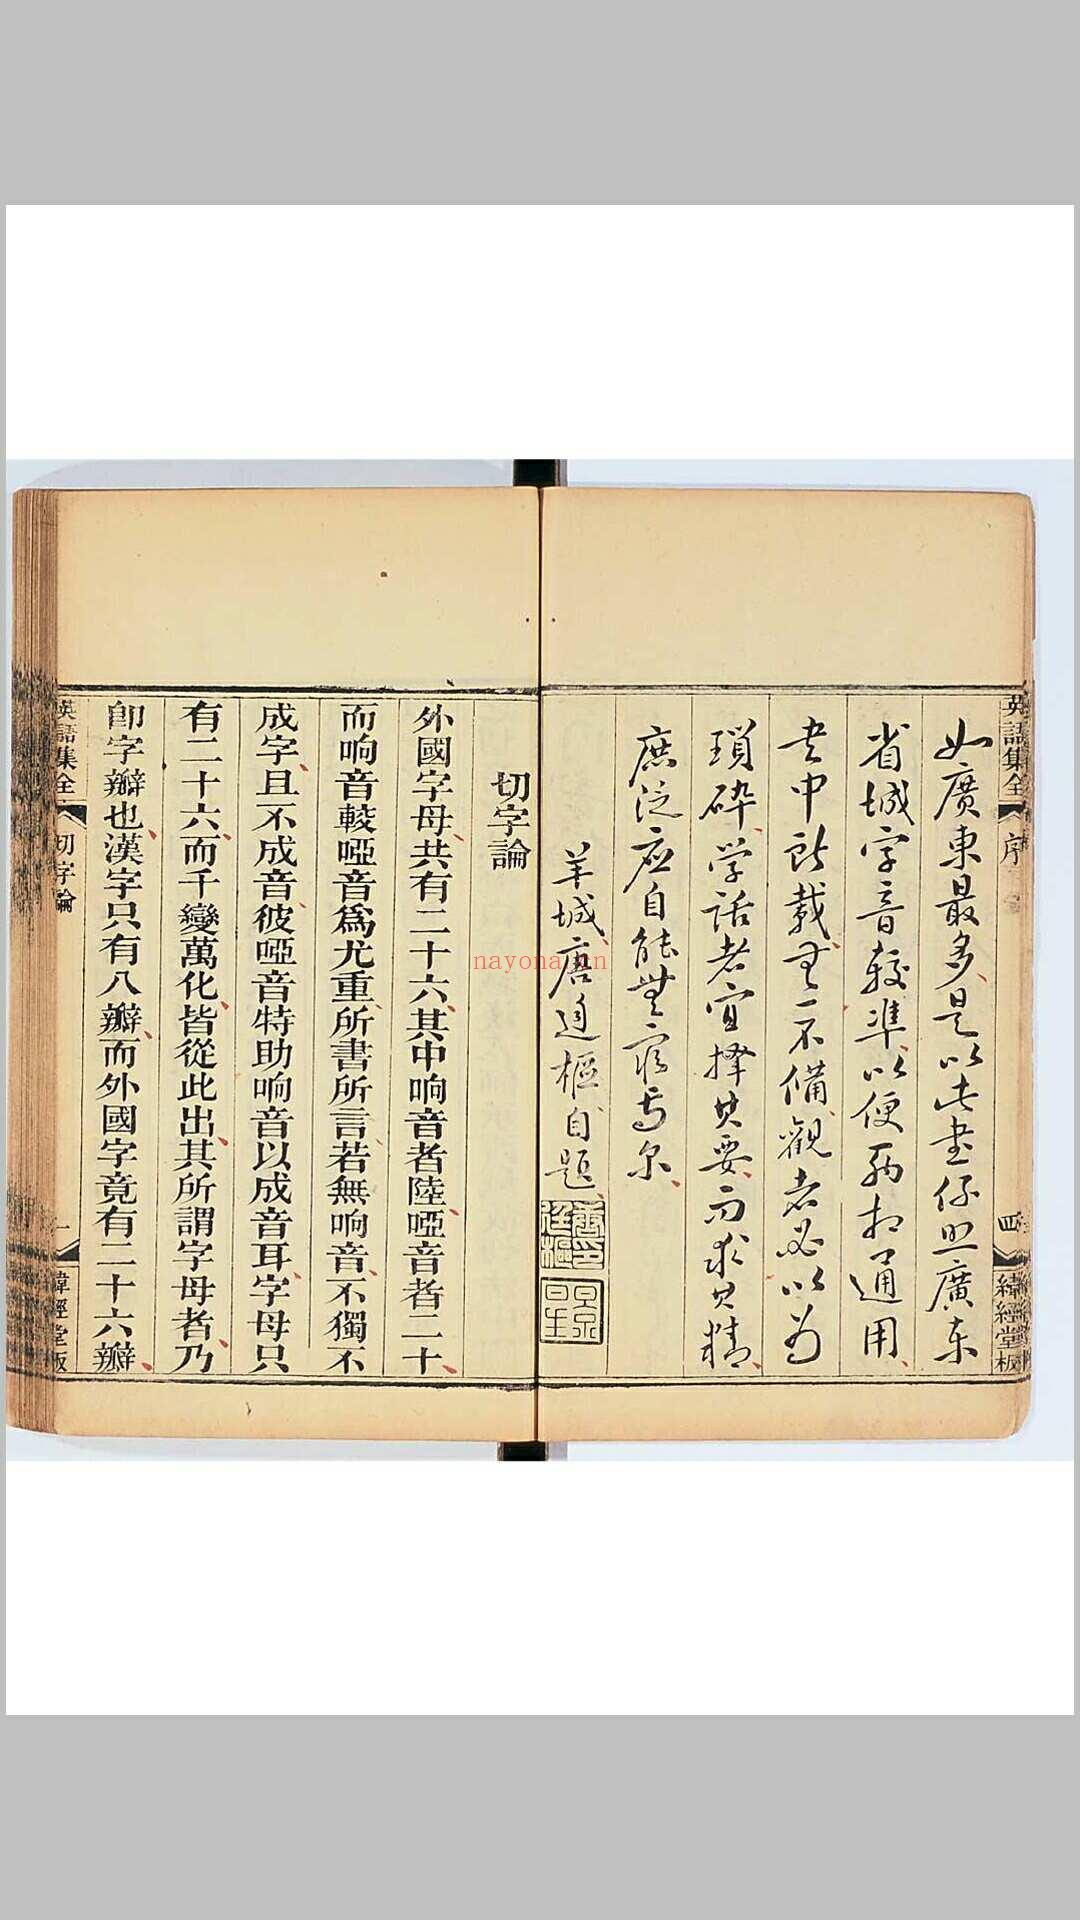 英語集全
序
四
緯經堂板
如廣東最多是以此書系照廣東
省城字音較準以便兩相通用
書中所載無一不備觀者必以為
瑣碎学話者宜擇其要而求其精
庶泛应自能無窮焉尔
羊城唐廷樞自題
切字論
外國字母共有二十六其中响音者陸啞音者二十
而响音較啞音為尤重所書所言若無响音不獨不
成字且不成音彼啞音特助响音以成音耳字母只
有二十六而千變萬化皆從此出其所謂字母者乃
即字瓣也漢字只有八瓣而外國字竟有二十六瓣
英語集全
切字論
一
緯經堂板
nayona.cn